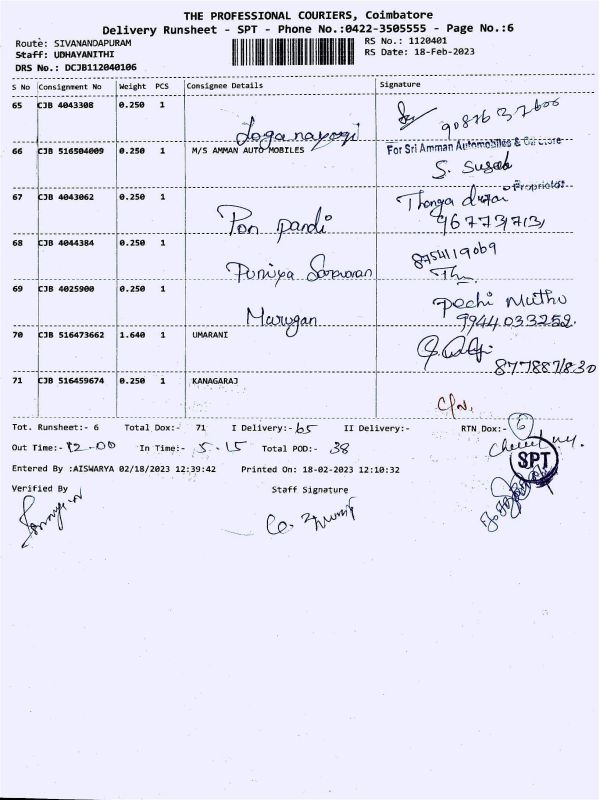 THE PROFESSIONAL COURIERS, Coimbatore
Delivery Runsheet - SPT - Phone No.:0422-3505555 - Page No.:6
Route: SIVANANDAPURAM RS No.: 1120401
Staff: UDHAYANITHI RS Date: 18-Feb-2023
DRS No.: DCJB112040106
S No Consignment No Weight PCS Consignee Details Signature
65 CJB 4043308 0.250 1 Loganayagi
66 CJB 516504009 0.250 1 M/S AMMAN AUTO MOBILES For Sri Amman Automobiles &
S. Suseb
Proprietor
67 CJB 4043062 0.250 1 Pon pandi Thanga durai
9677397131
68 CJB 4044384 0.250 1 Puniya Saravanan 8754119069
69 CJB 4025900 0.250 1 Murugan Pechi Muthu
9944033252
70 CJB 516473662 1.640 1 UMARANI
71 CJB 516459674 0.250 1 KANAGARAJ
Tot. Runsheet:- 6 Total Dox:- 71 I Delivery:- 65 II Delivery:- RTN Dox:- 6
Out Time:- 12-00 In Time:- 5-15 Total POD:- 38
SPT
Entered By :AISWARYA 02/18/2023 12:39:42 Printed On: 18-02-2023 12:10:32
Verified By Staff Signature